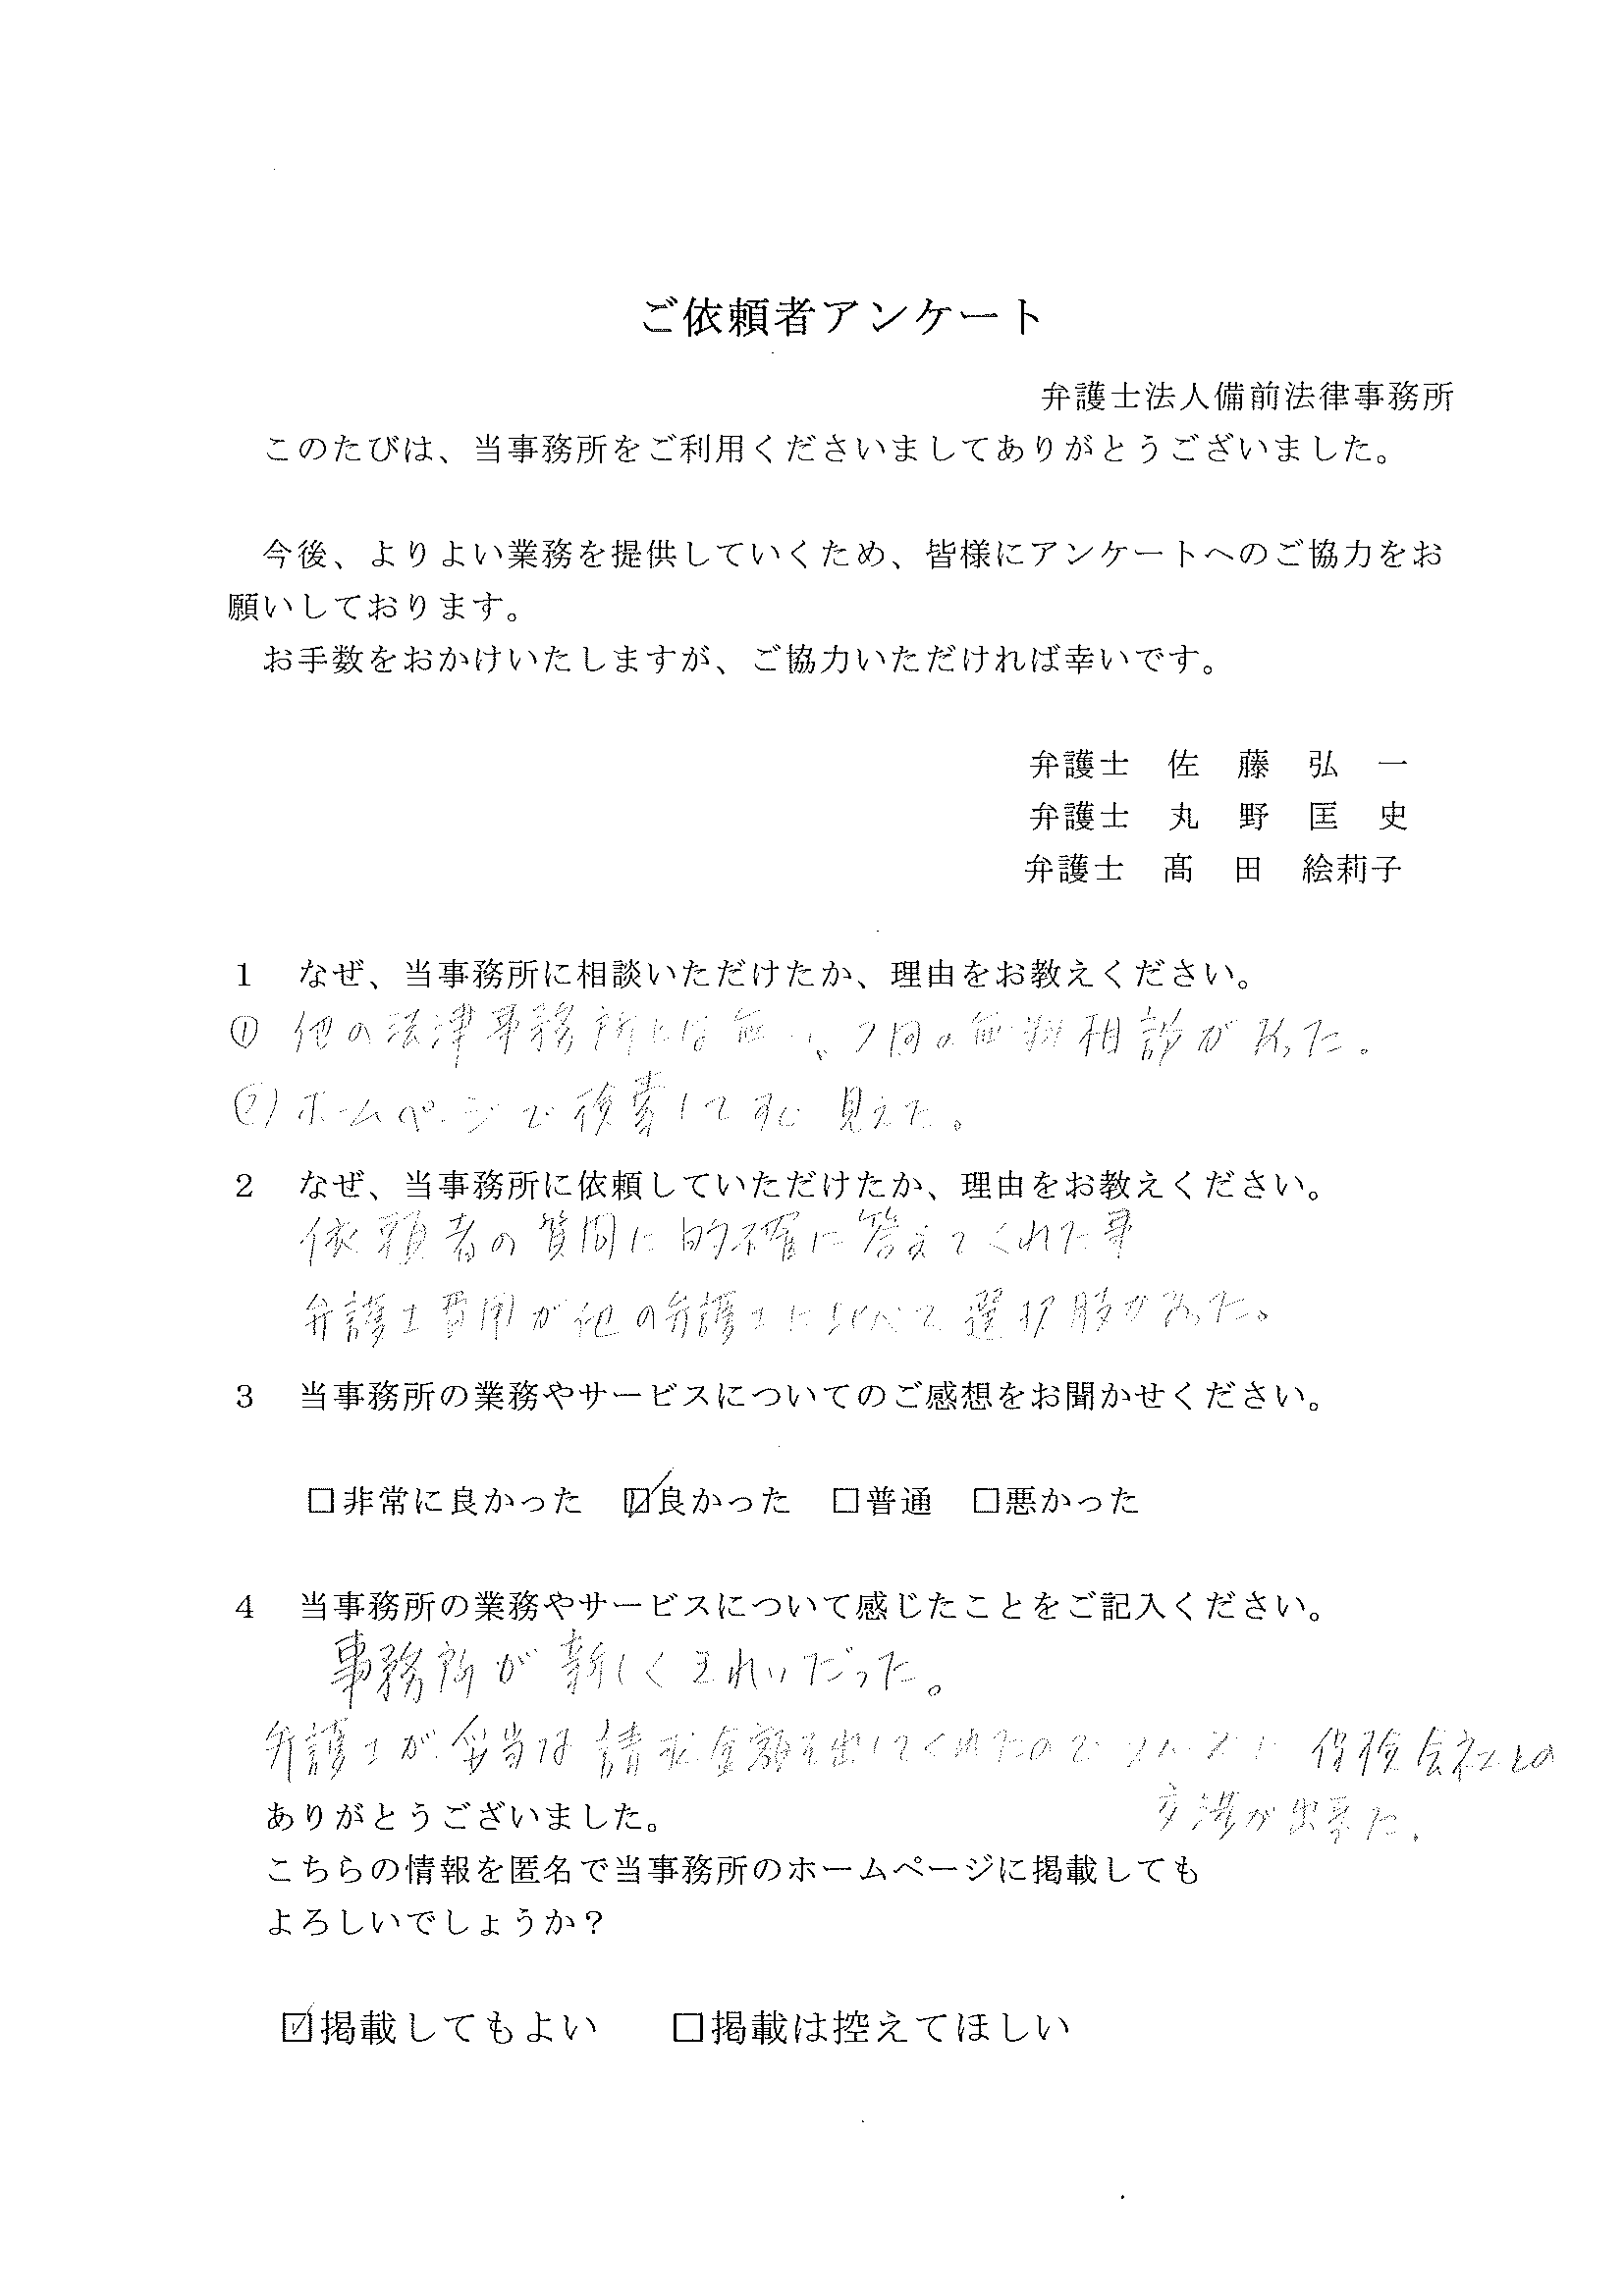 ご依頼者アンケート
弁護士法人備前法律事務所
このたびは、当事務所をご利用くださいましてありがとうございました。
今後、よりよい業務を提供していくため、皆様にアンケートへのご協力をお
願いしております。
お手数をおかけいたしますが、ご協力いただければ幸いです。
弁護士　佐　藤　弘　一
弁護士　丸　野　匡　史
弁護士　髙　田　絵莉子
１　なぜ、当事務所に相談いただけたか、理由をお教えください。
① 他の法律事務所には無い、回の無料相談があった。
② ホームページで検索してすぐ見えた。
２　なぜ、当事務所に依頼していただけたか、理由をお教えください。
依頼者の質問に的確に答えてくれた事
弁護士費用が他の弁護士に比べて選択肢があった。
３　当事務所の業務やサービスについてのご感想をお聞かせください。
□非常に良かった　☑良かった　□普通　□悪かった
４　当事務所の業務やサービスについて感じたことをご記入ください。
事務所が新しくきれいだった。
弁護士が妥当な請求金額を出してくれたのでスムーズに保険会社との
交渉が出来た。
ありがとうございました。
こちらの情報を匿名で当事務所のホームページに掲載しても
よろしいでしょうか？
☑掲載してもよい　□掲載は控えてほしい